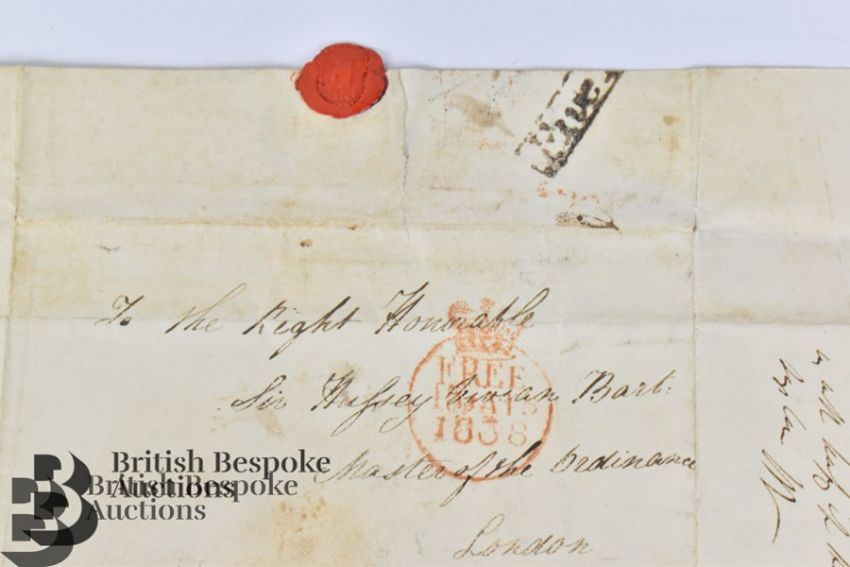 To the Right Honorable
FREE
Sir Hussey Vivian Bart:
1838
Master of the Ordinance
London
British Bespoke
Auctions
British Bespoke
Auctions